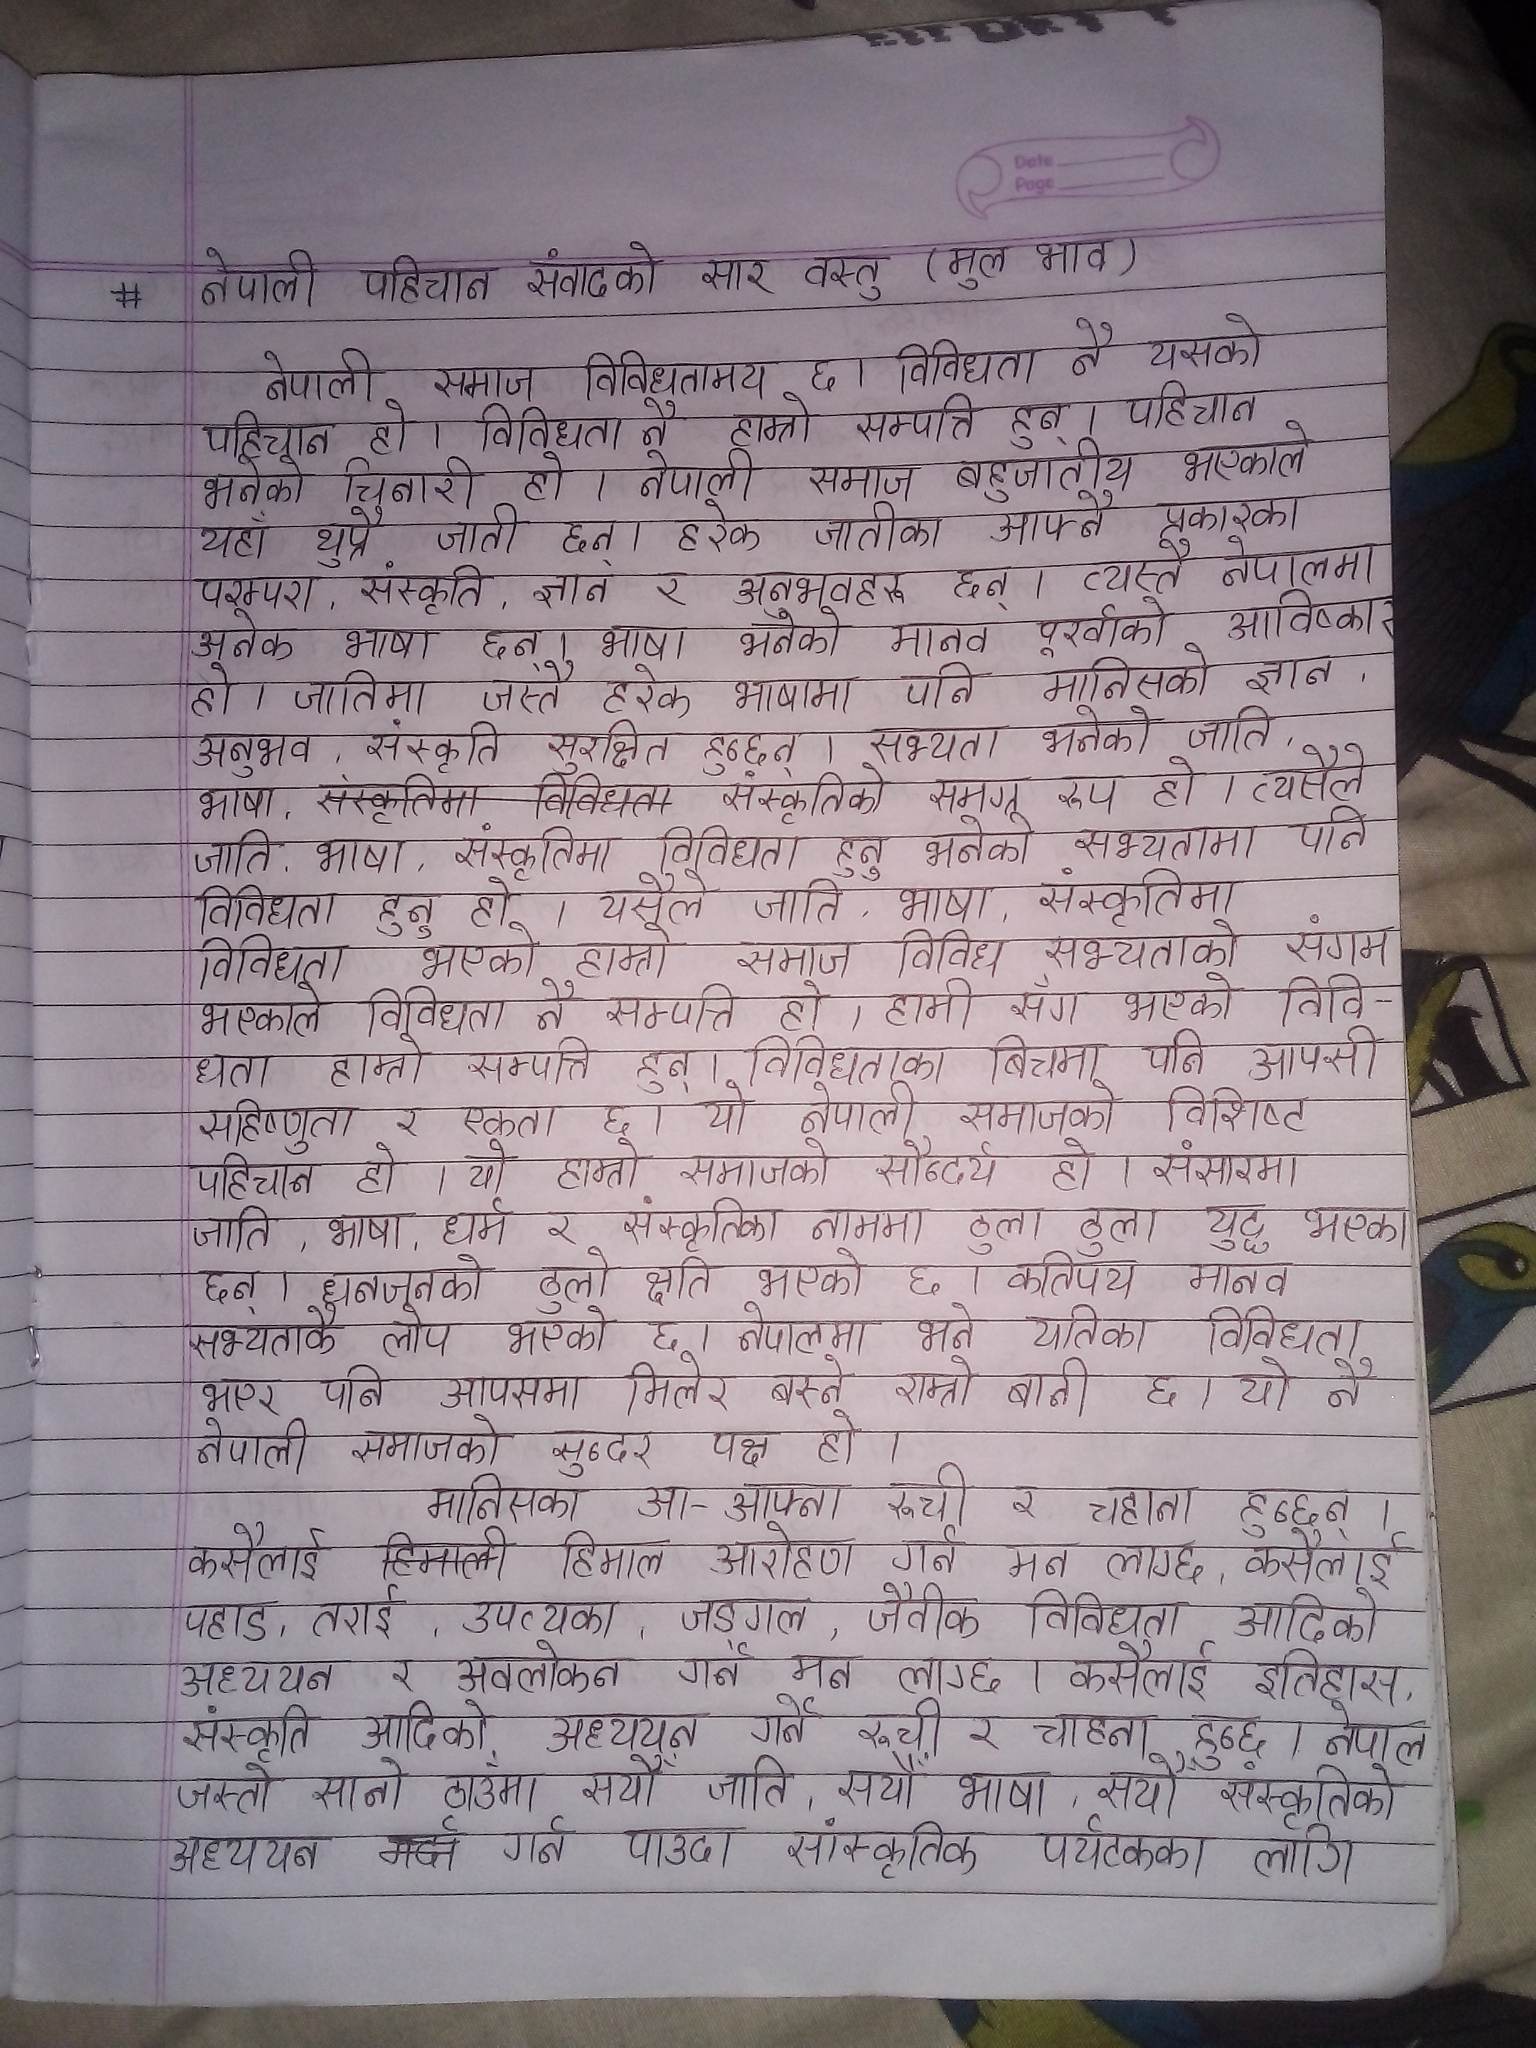 Date
Page
# नेपाली पहिचान संवादको सार वस्तु (मुल भाव)
नेपाली समाज विविधतामय छ। विविधता नै यसको
पहिचान हो। विविधता नै हाम्रो सम्पत्ति हुन्। पहिचान
भनेको चिनारी हो। नेपाली समाज बहुजातीय भएकाले
यहाँ थुप्रै जाती छन्। हरेक जातीका आफ्नै प्रकारका
परम्परा, संस्कृति, ज्ञान र अनुभवहरू छन्। त्यस्तै नेपालमा
अनेक भाषा छन्। भाषा भनेको मानव पूर्खाको आविष्कार
हो। जातिमा जस्तै हरेक भाषामा पनि मानिसको ज्ञान,
अनुभव, संस्कृति सुरक्षित हुन्छन्। सभ्यता भनेको जाति,
भाषा, संस्कृतिमा विविधता संस्कृतिको समग्र रूप हो। त्यसैले
जाति, भाषा, संस्कृतिमा विविधता हुनु भनेको सभ्यतामा पनि
विविधता हुनु हो। यसैले जाति, भाषा, संस्कृतिमा
विविधता भएको हाम्रो समाज विविध सभ्यताको संगम
भएकाले विविधता नै सम्पत्ति हो। हामी सँग भएको विवि-
धता हाम्रो सम्पत्ति हुन्। विविधताका बिचमा पनि आपसी
सहिष्णुता र एकता छ। यो नेपाली समाजको विशिष्ट
पहिचान हो। यो हाम्रो समाजको सौन्दर्य हो। संसारमा
जाति, भाषा, धर्म र संस्कृतिका नाममा ठुला ठुला युद्ध भएका
छन्। धनजनको ठुलो क्षति भएको छ। कतिपय मानव
सभ्यताकै लोप भएको छ। नेपालमा भने यतिका विविधता
भएर पनि आपसमा मिलेर बस्ने राम्रो बानी छ। यो नै
नेपाली समाजको सुन्दर पक्ष हो।
मानिसका आ-आफ्ना रूची र चहाना हुन्छन्।
कसैलाई हिमाली हिमाल आरोहण गर्न मन लाग्छ, कसैलाई
पहाड, तराई, उपत्यका, जङ्गल, जैवीक विविधता आदिको
अध्ययन र अवलोकन गर्न मन लाग्छ। कसैलाई इतिहास,
संस्कृति आदिको अध्ययन गर्ने रूची र चाहना हुन्छ। नेपाल
जस्तो सानो ठाउँमा सयौँ जाति, सयौँ भाषा, सयौँ संस्कृतिको
अध्ययन गर्न पाउदा सांस्कृतिक पर्यटकका लागि